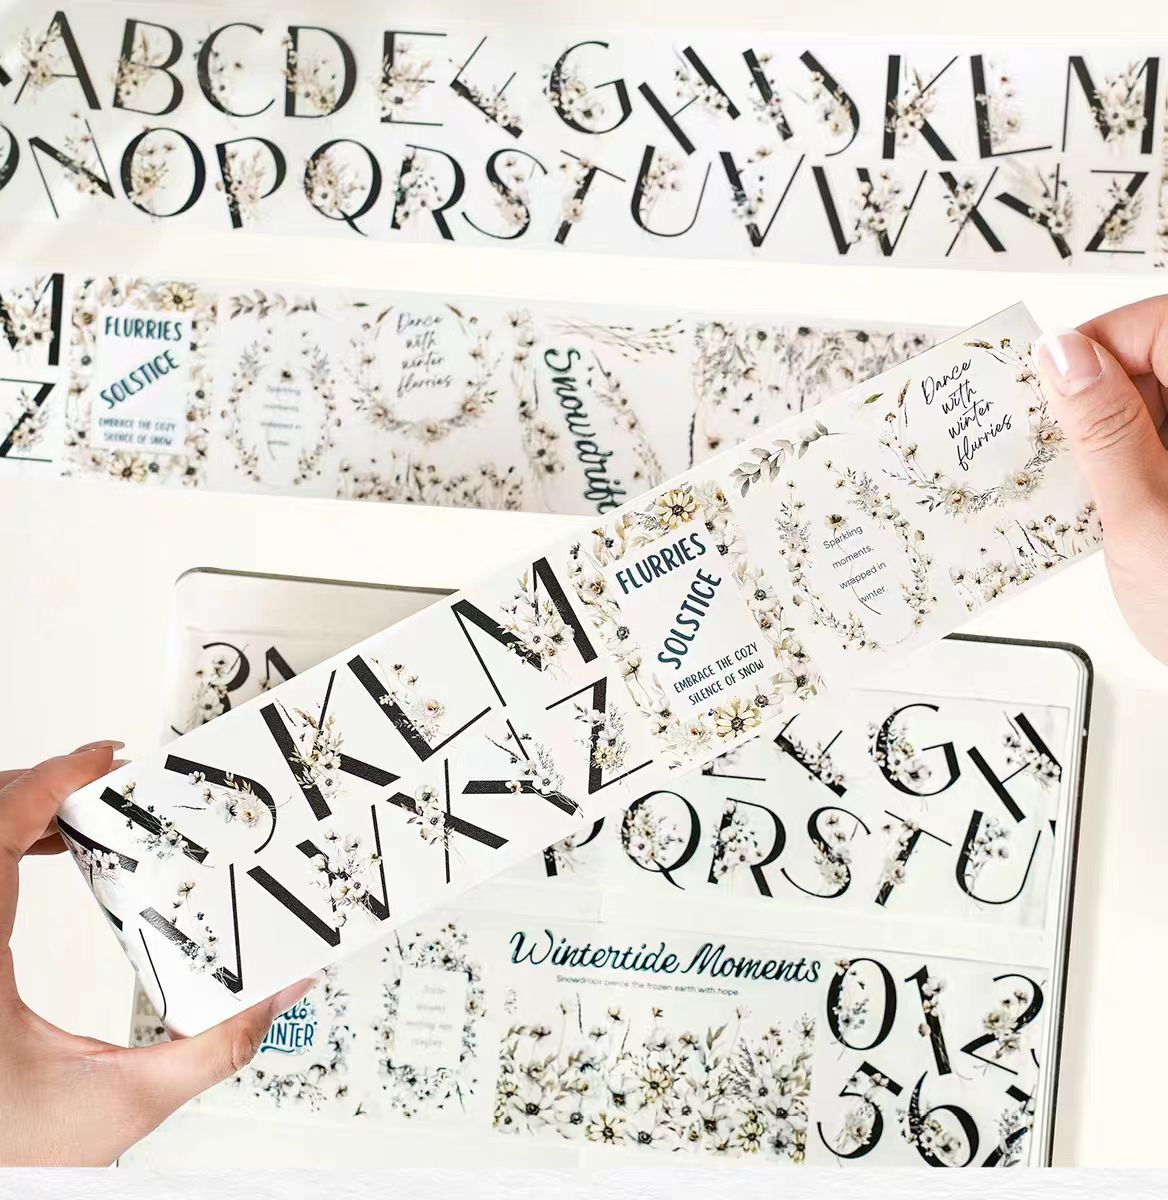 ABCDEFGHIJKLM
NOPQRSTUVWXYZ
M
Z
FLURRIES
SOLSTICE
EMBRACE THE COZY
SILENCE OF SNOW
Dance
with
winter
flurries
Snowdrift
JKLM
VWXYZ
FLURRIES
SOLSTICE
EMBRACE THE COZY
SILENCE OF SNOW
Sparkling
moments,
wrapped in
winter
Dance
with
winter
flurries
GH
PQRSTU
WINTER
Wintertide Moments
Snowdrops pierce the frozen earth with hope
012
56